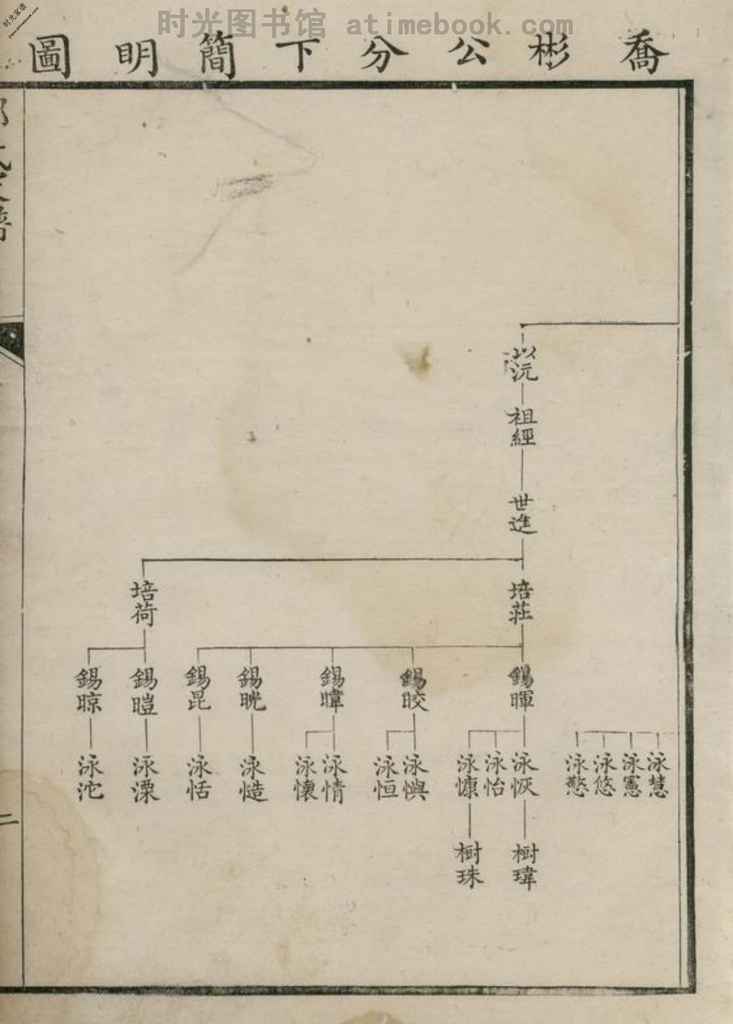 时光图书馆 atimebook.com
喬彬公分下簡明圖
以沅
祖經
世進
培莊
培荷
錫暉
錫晈
錫暐
錫晄
錫昆
錫暟
錫晾
泳慧
泳憲
泳悠
泳憗
泳恢
泳怡
泳慷
泳懊
泳恒
泳情
泳懷
泳慥
泳恬
泳溧
泳沱
樹瑋
樹珠
二